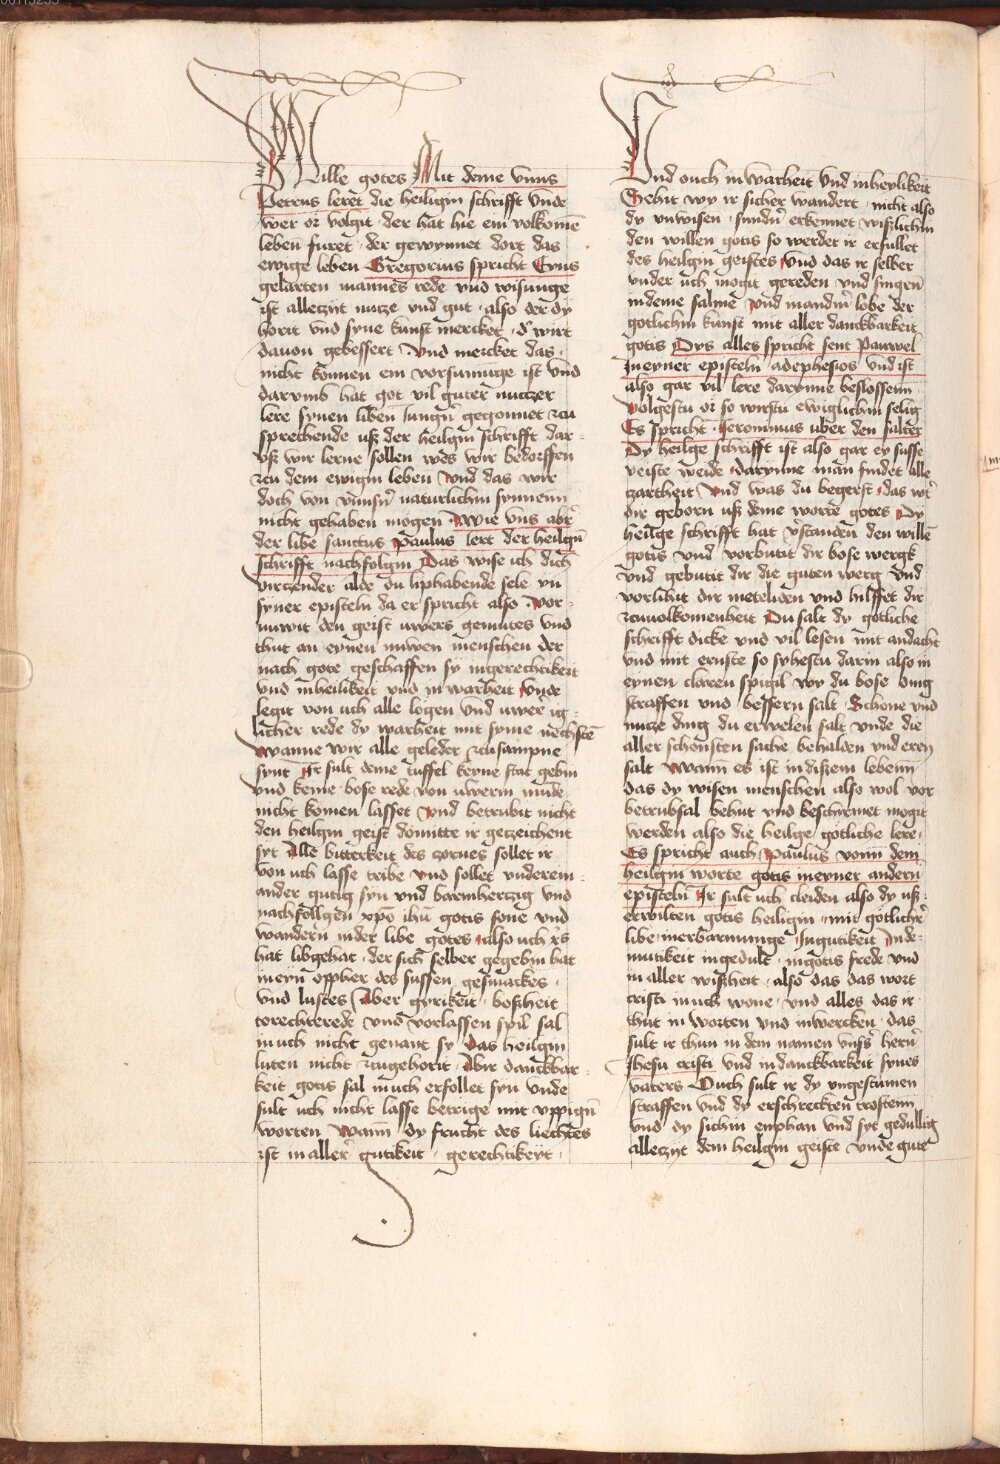 Wille gotes Mit deme vnns
Petrus leret die heiligin schrifft vnde
wer or volgit der hat hie ein volkomē
leben furet · der gewynnet dort das
ewige leben Gregorius spricht Eyns
gelarten mannes rede vnd wisunge
ist alleczyt nutze vnd gut · also der dy
horit vnd syne kunst mercket · d' wirt
dauon gebessert Vnd mercket das ·
nicht konnen ein vorsumuge ist vnd
darvmb hat got vil guter nuttzer
lere synen liben Jungñ gegonnet zcu
sprechende uß der heiligin schrifft dar
vß wir lerne sollen wes wir bedorffen
zcu dem ewigin leben Vnd das wir
doch von vnnsñ naturlichin synnenn
nicht gehaben mogen Wie vns abr̄
der libe sanctus Paulus lert der heilgñ
schrifft nachfolgin Das wise ich dich
virczender alde du liphabende sele yn
syner episteln da er spricht also · Vor
nuwit den geist uwers gemutes vnd
thut an eynen nuwen menschen der
nach gote geschaffen sy ingerechtikeit
vnd inheilikeit vnd in warheit Vnde
legit von uch alle logen vnd uwer ig
licher rede dy warheit mit syme nechstē
Wanne wir alle geleder zcusampne
synt Ir sult deme tuffel keyne stat gebin
vnd keine bose rede von uwerm mūde
nicht komen lasset Vnd betrubit nicht
den heilgin geist do mitte ir getzeichent
syt Alle bitterkeit des zcornes sollet ir
von uch lasse tribe Vnd sollet vnderem
ander gutig syn vnd barmhertzig vnd
nachfollgen xpō ihū gotis sone vnd
wandern inder libe gotes also uch x̄s
hat libgehat · der sich selber gegebin hat
in eyn oppher des sussen gesmackes ·
vnd lustes Aber gyrikeit · boßheit
torechterede vnd vorlassen spil sal
in uch nicht genant sy Das heilgin
luten nicht zcugehorit · Abir danckbar
keit gotis sal in uch erfollet syn vnde
sult uch nicht lasse betrige mit vppigñ
worten Wann dy frucht des liechtes
ist in aller gutikeit · gerechtikeyt ·
Vnd ouch in warheit vnd inheylikeit
Sehit wy ir sicher wandert · nicht also
dy vnwisen · sundñ erkennet wißlichin
den willen gotis so werdet ir erfullet
des heilgin geistes Vnd das ir selber
vnder uch mogit gereden vnd singen
in deme salme Vnd mandñ lobe der
gotlichin kunst mit aller danckbarkeit
gotis Dys alles spricht sent Pauwel
In eyner episteln adephesios vnd ist
also gar vil lere darynne beslossenn
Volgestu or so wirstu ewiglichin selig
Es spricht Jeronimus uber den salter
Dy heilge schrifft ist also gar ey susse
veiste weide darynne man findet alle
zartheit Vnd was du begerst · das wt̄
dir geborn uß deme worte gotes Dy
heilge schrifft hat vs̄tanden den willē
gotis vnd vorbutit dir bose wergk
vnd gebutit dir die guten werg vnd
vorlihit dir meteliden vnd hilffet dir
zcuuolkomenheit Du salt dy gotliche
schrifft dicke vnd vil lesen mit andacht
vnd mit ernste so syhestu darin also in
eynen claren spigil wy du bose ding
straffen vnd bessern salt Schone vnd
nutze ding du erwelen salt vnde die
aller schonsten sache behalden vnd eren
salt Wann es ist in dißem lebenn
das dy wisen menschen also wol vor
betrubsal behut vnd beschirmet mogit
werden also die heilge gotliche lere ·
Es spricht auch Paulus vonn dem
heilgin worte gotis in eyner andern
episteln Ir sult uch cleiden also dy uß
erwilten gotis heiligin mit gotlicher
libe inerbarmunge Ingutikeit Inde
mutikeit ingedult · ingotis frede vnd
in aller wißheit · also das das wort
cristi in uch wone · vnd alles das ir
thut in worten vnd inwercken · das
sult ir thun in dem namen vnsr̄s hern
Jhesu cristi vnd in danckbarkeit synes
vaters Ouch sult ir dy vngestumen
straffen vnd dy erschreckten trostenn
vnd dy sichin enphan vnd syt gedultig
alleczyt dem heilgin geiste vnde gute